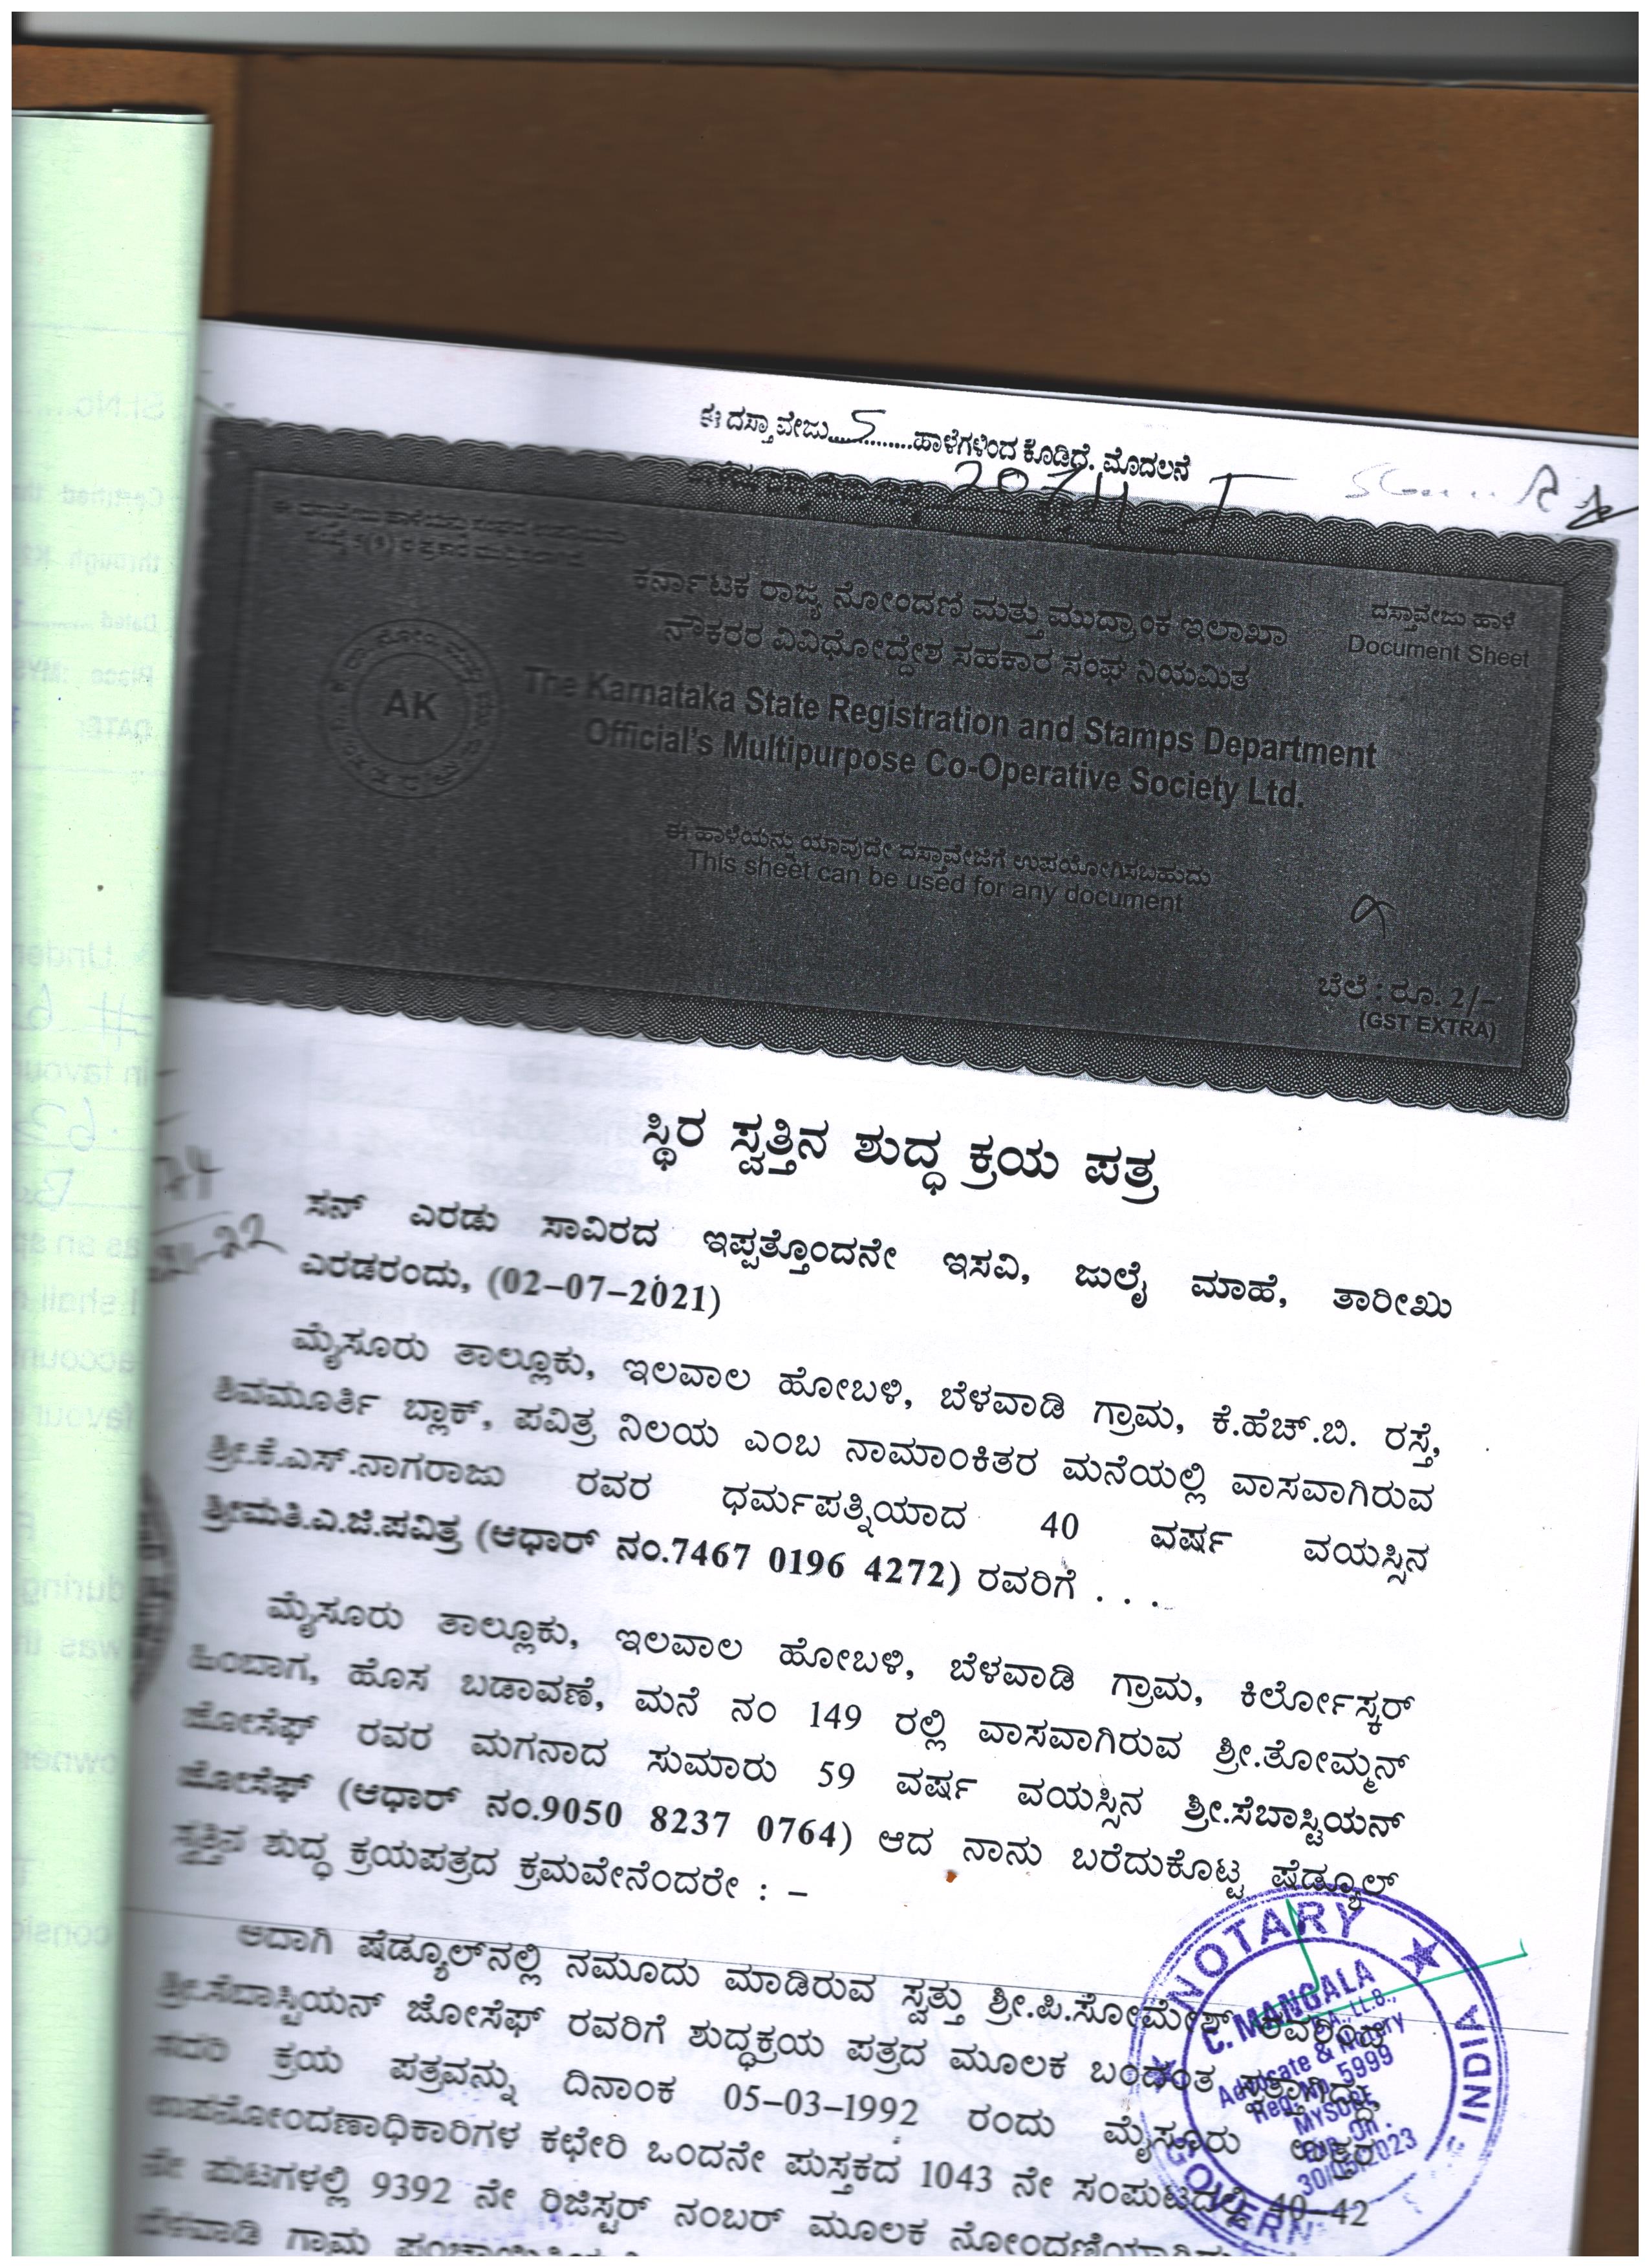 ಈ ದಸ್ತಾವೇಜು 5 ಹಾಳೆಗಳಿಂದ ಕೂಡಿದೆ. ಮೊದಲನೆ
ಕರ್ನಾಟಕ ರಾಜ್ಯ ನೋಂದಣಿ ಮತ್ತು ಮುದ್ರಾಂಕ ಇಲಾಖಾ
ನೌಕರರ ವಿವಿಧೋದ್ದೇಶ ಸಹಕಾರ ಸಂಘ ನಿಯಮಿತ
ದಸ್ತಾವೇಜು ಹಾಳೆ
Document Sheet
AK
The Karnataka State Registration and Stamps Department
Official's Multipurpose Co-Operative Society Ltd.
ಈ ಹಾಳೆಯನ್ನು ಯಾವುದೇ ದಸ್ತಾವೇಜಿಗೆ ಉಪಯೋಗಿಸಬಹುದು
This sheet can be used for any document
ಬೆಲೆ : ರೂ. 2/-
(GST EXTRA)
ಸ್ಥಿರ ಸ್ವತ್ತಿನ ಶುದ್ಧ ಕ್ರಯ ಪತ್ರ
ಸನ್ ಎರಡು ಸಾವಿರದ ಇಪ್ಪತ್ತೊಂದನೇ ಇಸವಿ, ಜುಲೈ ಮಾಹೆ, ತಾರೀಖು
ಎರಡರಂದು, (02-07-2021)
ಮೈಸೂರು ತಾಲ್ಲೂಕು, ಇಲವಾಲ ಹೋಬಳಿ, ಬೆಳವಾಡಿ ಗ್ರಾಮ, ಕೆ.ಹೆಚ್.ಬಿ. ರಸ್ತೆ,
ಶಿವಮೂರ್ತಿ ಬ್ಲಾಕ್, ಪವಿತ್ರ ನಿಲಯ ಎಂಬ ನಾಮಾಂಕಿತರ ಮನೆಯಲ್ಲಿ ವಾಸವಾಗಿರುವ
ಶ್ರೀ.ಕೆ.ಎಸ್.ನಾಗರಾಜು ರವರ ಧರ್ಮಪತ್ನಿಯಾದ 40 ವರ್ಷ ವಯಸ್ಸಿನ
ಶ್ರೀಮತಿ.ಎ.ಜಿ.ಪವಿತ್ರ (ಆಧಾರ್ ನಂ.7467 0196 4272) ರವರಿಗೆ . . .
ಮೈಸೂರು ತಾಲ್ಲೂಕು, ಇಲವಾಲ ಹೋಬಳಿ, ಬೆಳವಾಡಿ ಗ್ರಾಮ, ಕಿರ್ಲೋಸ್ಕರ್
ಹಿಂಬಾಗ, ಹೊಸ ಬಡಾವಣೆ, ಮನೆ ನಂ 149 ರಲ್ಲಿ ವಾಸವಾಗಿರುವ ಶ್ರೀ.ತೋಮ್ಮನ್
ಜೋಸೆಫ್ ರವರ ಮಗನಾದ ಸುಮಾರು 59 ವರ್ಷ ವಯಸ್ಸಿನ ಶ್ರೀ.ಸೆಬಾಸ್ಟಿಯನ್
ಜೋಸೆಫ್ (ಆಧಾರ್ ನಂ.9050 8237 0764) ಆದ ನಾನು ಬರೆದುಕೊಟ್ಟ ಷೆಡ್ಯೂಲ್
ಸ್ವತ್ತಿನ ಶುದ್ಧ ಕ್ರಯಪತ್ರದ ಕ್ರಮವೇನೆಂದರೇ : -
ಅದಾಗಿ ಷೆಡ್ಯೂಲ್‌ನಲ್ಲಿ ನಮೂದು ಮಾಡಿರುವ ಸ್ವತ್ತು ಶ್ರೀ.ಪಿ.ಸೋಮೇಶ್ ರವರಿಂದ
ಶ್ರೀ.ಸೆಬಾಸ್ಟಿಯನ್ ಜೋಸೆಫ್ ರವರಿಗೆ ಶುದ್ಧಕ್ರಯ ಪತ್ರದ ಮೂಲಕ ಬಂದಂತ ಸ್ವತ್ತಾಗಿದ್ದು,
ಸದರಿ ಕ್ರಯ ಪತ್ರವನ್ನು ದಿನಾಂಕ 05-03-1992 ರಂದು ಮೈಸೂರು ಉತ್ತರ
ಉಪನೋಂದಣಾಧಿಕಾರಿಗಳ ಕಛೇರಿ ಒಂದನೇ ಪುಸ್ತಕದ 1043 ನೇ ಸಂಪುಟದಲ್ಲಿ 40-42
ನೇ ಪುಟಗಳಲ್ಲಿ 9392 ನೇ ರಿಜಿಸ್ಟರ್ ನಂಬರ್ ಮೂಲಕ
ಬೆಳವಾಡಿ ಗ್ರಾಮ
NOTARY
C. MANGALA
B.A., LL.B.,
Advocate & Notary
Reg. No. 5999
MYSORE
Exp. On.
30/05/2023
INDIA